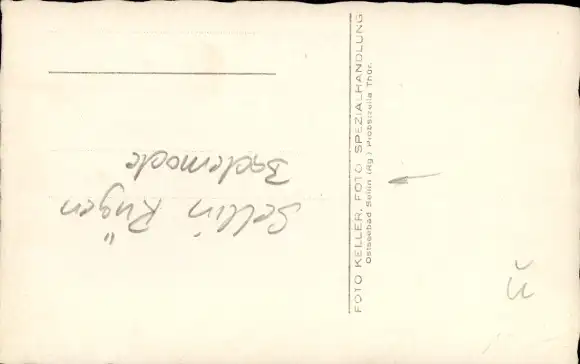 Sellin Rügen
Bademode
FOTO KELLER, FOTO SPEZIALHANDLUNG
Ostseebad Sellin (Rg.) Probstzella Thür.